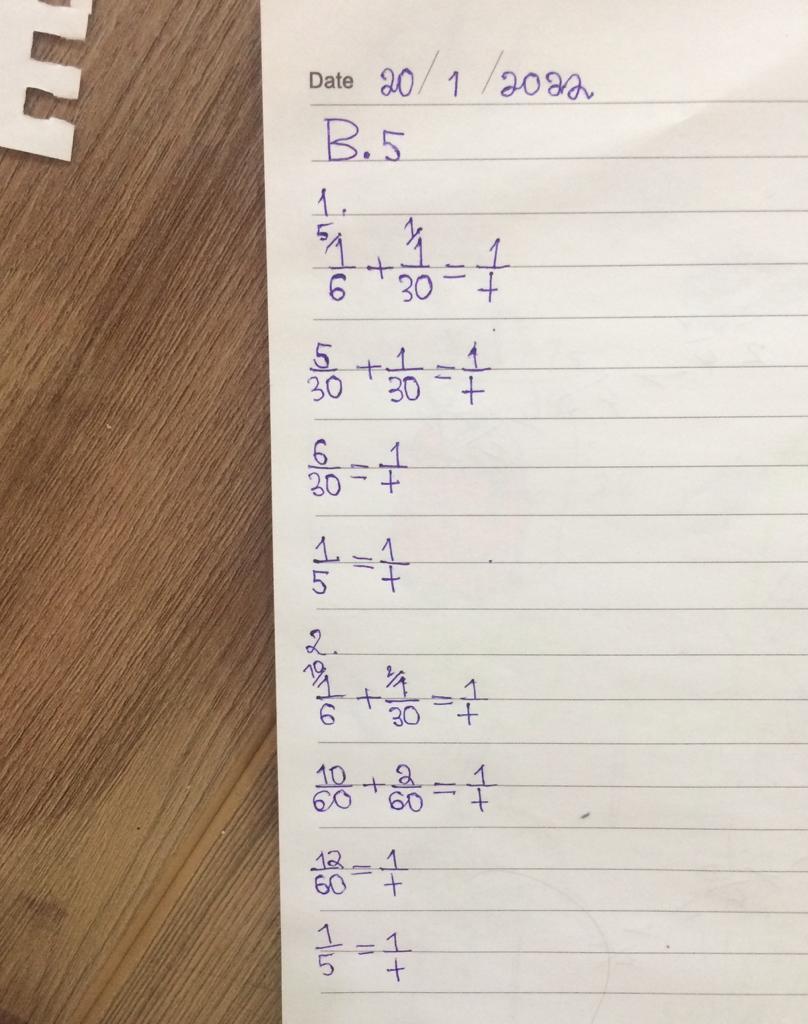 Date 20/1/2022
B.5
1.
⁵⁄1/6 + ¹⁄1/30 = 1/t
5/30 + 1/30 = 1/t
6/30 = 1/t
1/5 = 1/t
2.
¹⁰⁄1/6 + ²⁄1/30 = 1/t
10/60 + 2/60 = 1/t
12/60 = 1/t
1/5 = 1/t